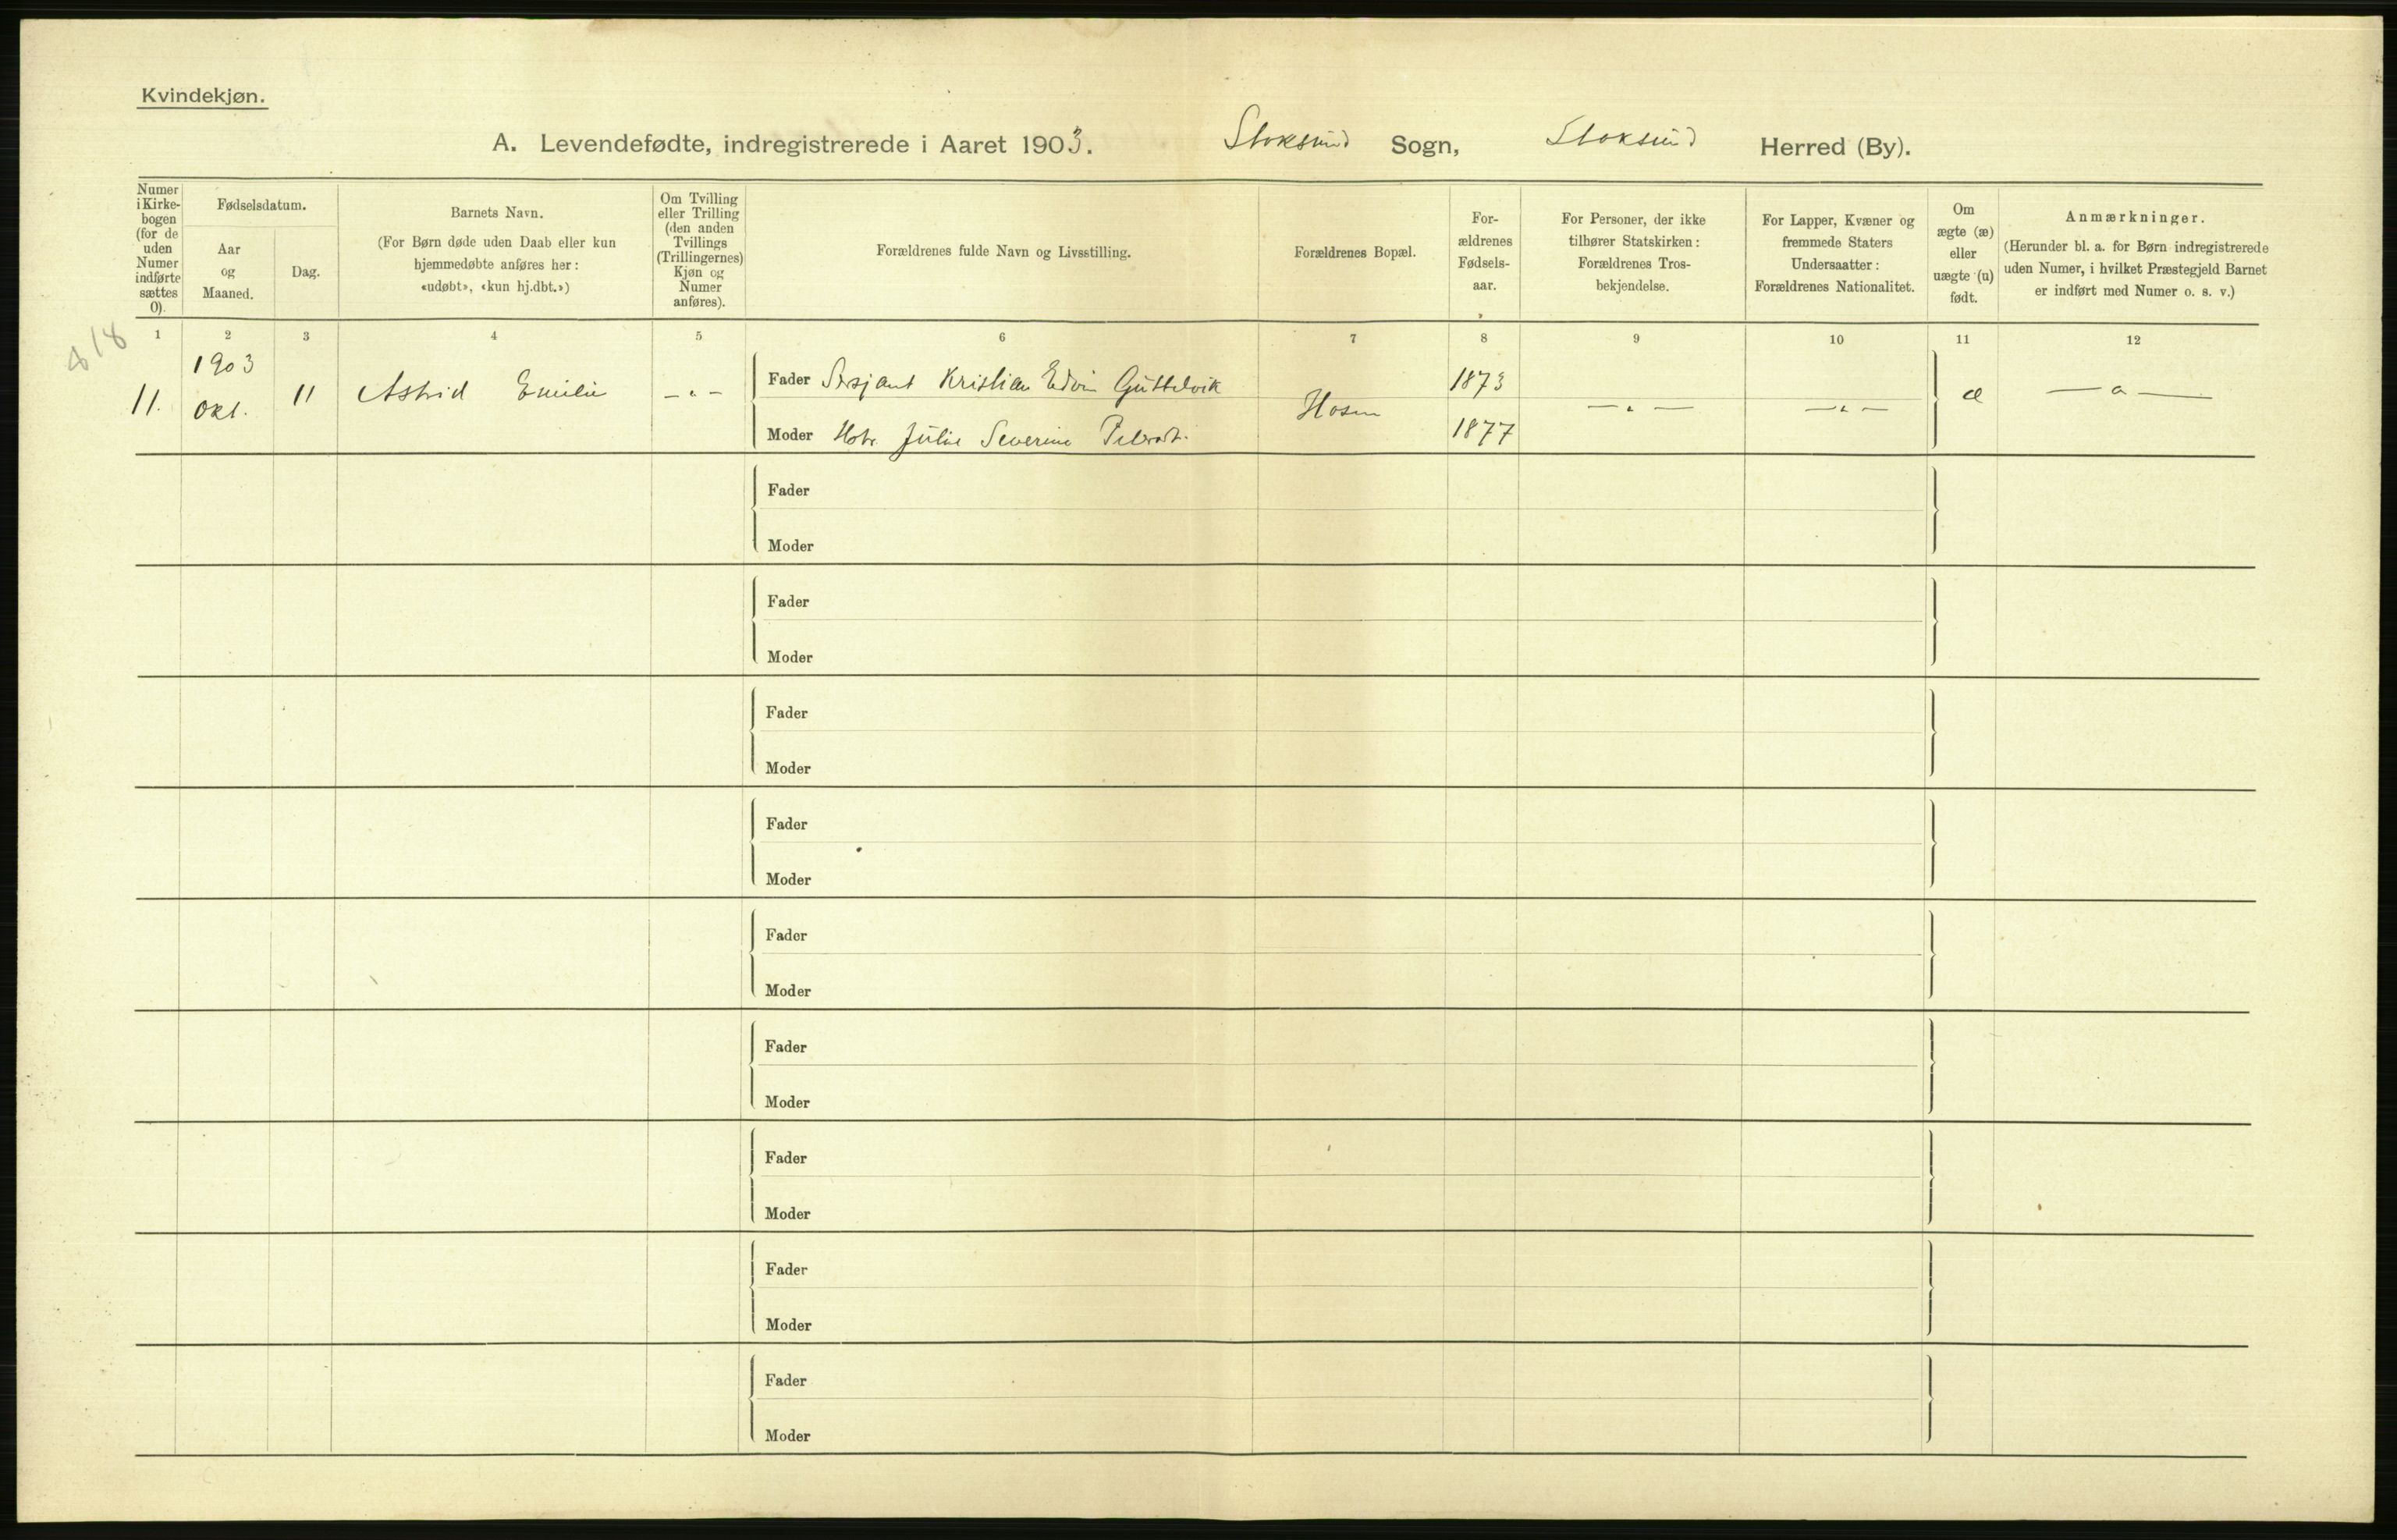 Kvindekjøn.
A. Levendefødte, indregistrerede i Aaret 1903. Stoksund Sogn, Stoksund Herred (By).
Numer i Kirke-bogen (for de uden Numer indførte sættes 0).
Fødselsdatum.
Aar og Maaned.
Dag.
Barnets Navn.
(For Børn døde uden Daab eller kun hjemmedøbte anføres her: «udøbt», «kun hj.dbt.»)
Om Tvilling eller Trilling (den anden Tvillings (Trillingernes) Kjøn og Numer anføres).
Forældrenes fulde Navn og Livsstilling.
Forældrenes Bopæl.
For-ældrenes Fødsels-aar.
For Personer, der ikke tilhører Statskirken: Forældrenes Tros-bekjendelse.
For Lapper, Kvæner og fremmede Staters Undersaatter: Forældrenes Nationalitet.
Om ægte (æ) eller uægte (u) født.
Anmærkninger.
(Herunder bl. a. for Børn indregistrerede uden Numer, i hvilket Præstegjeld Barnet er indført med Numer o. s. v.)
1 2 3 4 5 6 7 8 9 10 11 12
11. 1903 Okt. 11 Astrid Emilie — " — Fader Sersjant Kristian Edvin Guttelvik Hosen 1873 — " — — " — æ — " —
Moder Hstr. Julie Severine 1877
Fader
Moder
Fader
Moder
Fader
Moder
Fader
Moder
Fader
Moder
Fader
Moder
Fader
Moder
Fader
Moder
Fader
Moder